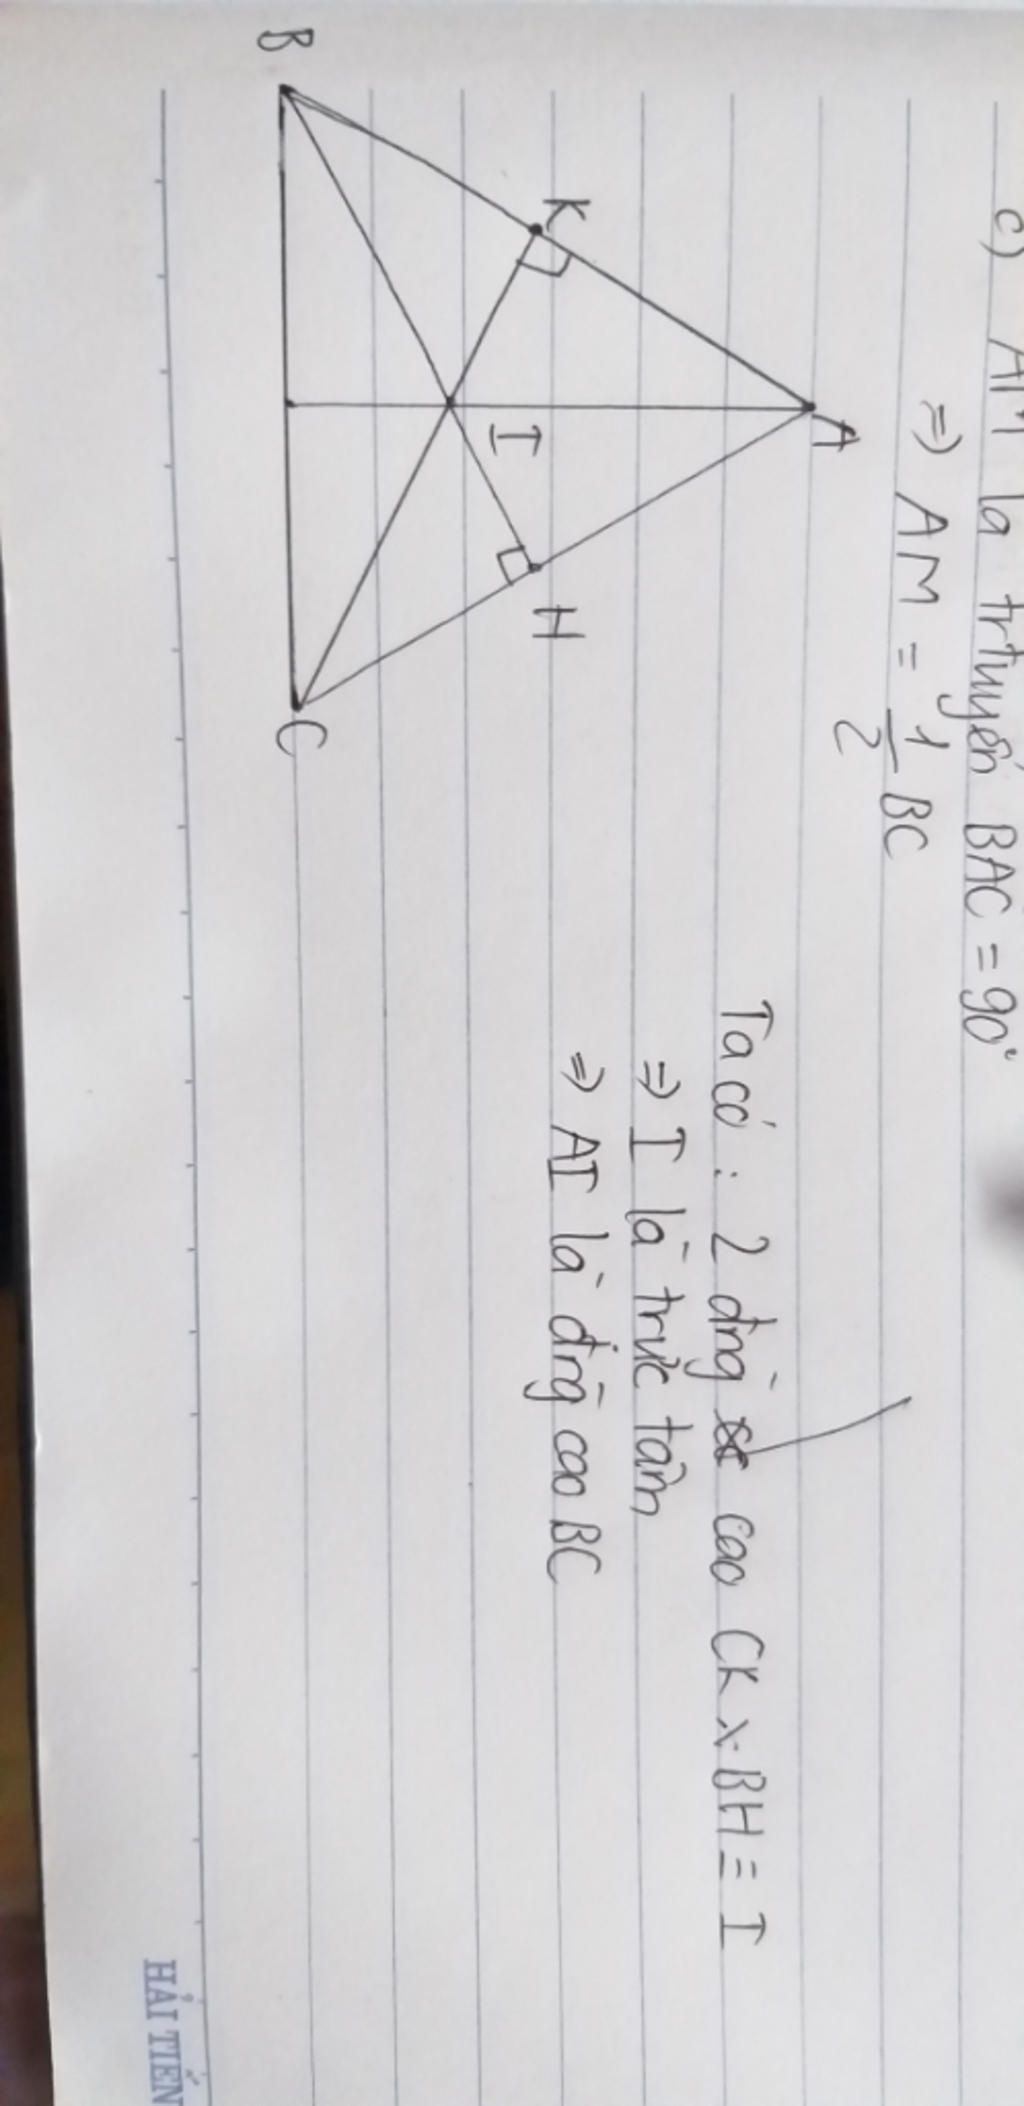 c) AM là trtuyến BAC = 90°
=> AM = 1/2 BC
A
K
H
I
B
C
Ta có: 2 đng cao CK x BH = I
=> I là trực tâm
=> AI là đng cao BC
HẢI TIẾN